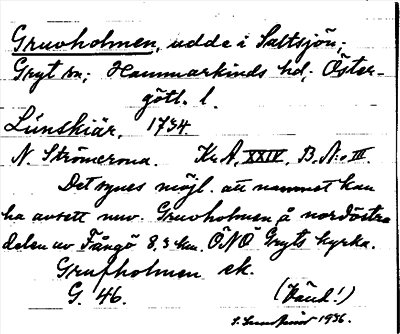 Gruvholmen, udde i Saltsjön;
Gryt sn; Hammarkinds hd; Öster-
götl. l.
Lünskiär, 1734.
N. Strömcrona. Kr. A, XXIV, B. No III.
Det synes möjl. att namnet kan
ha avsett nuv. Gruvholmen å nordöstra
delen av Fångö 8,3 km. ÖNÖ Gryts kyrka.
Grufholmen ek.
G. 46.
(Vänd!)
1936.